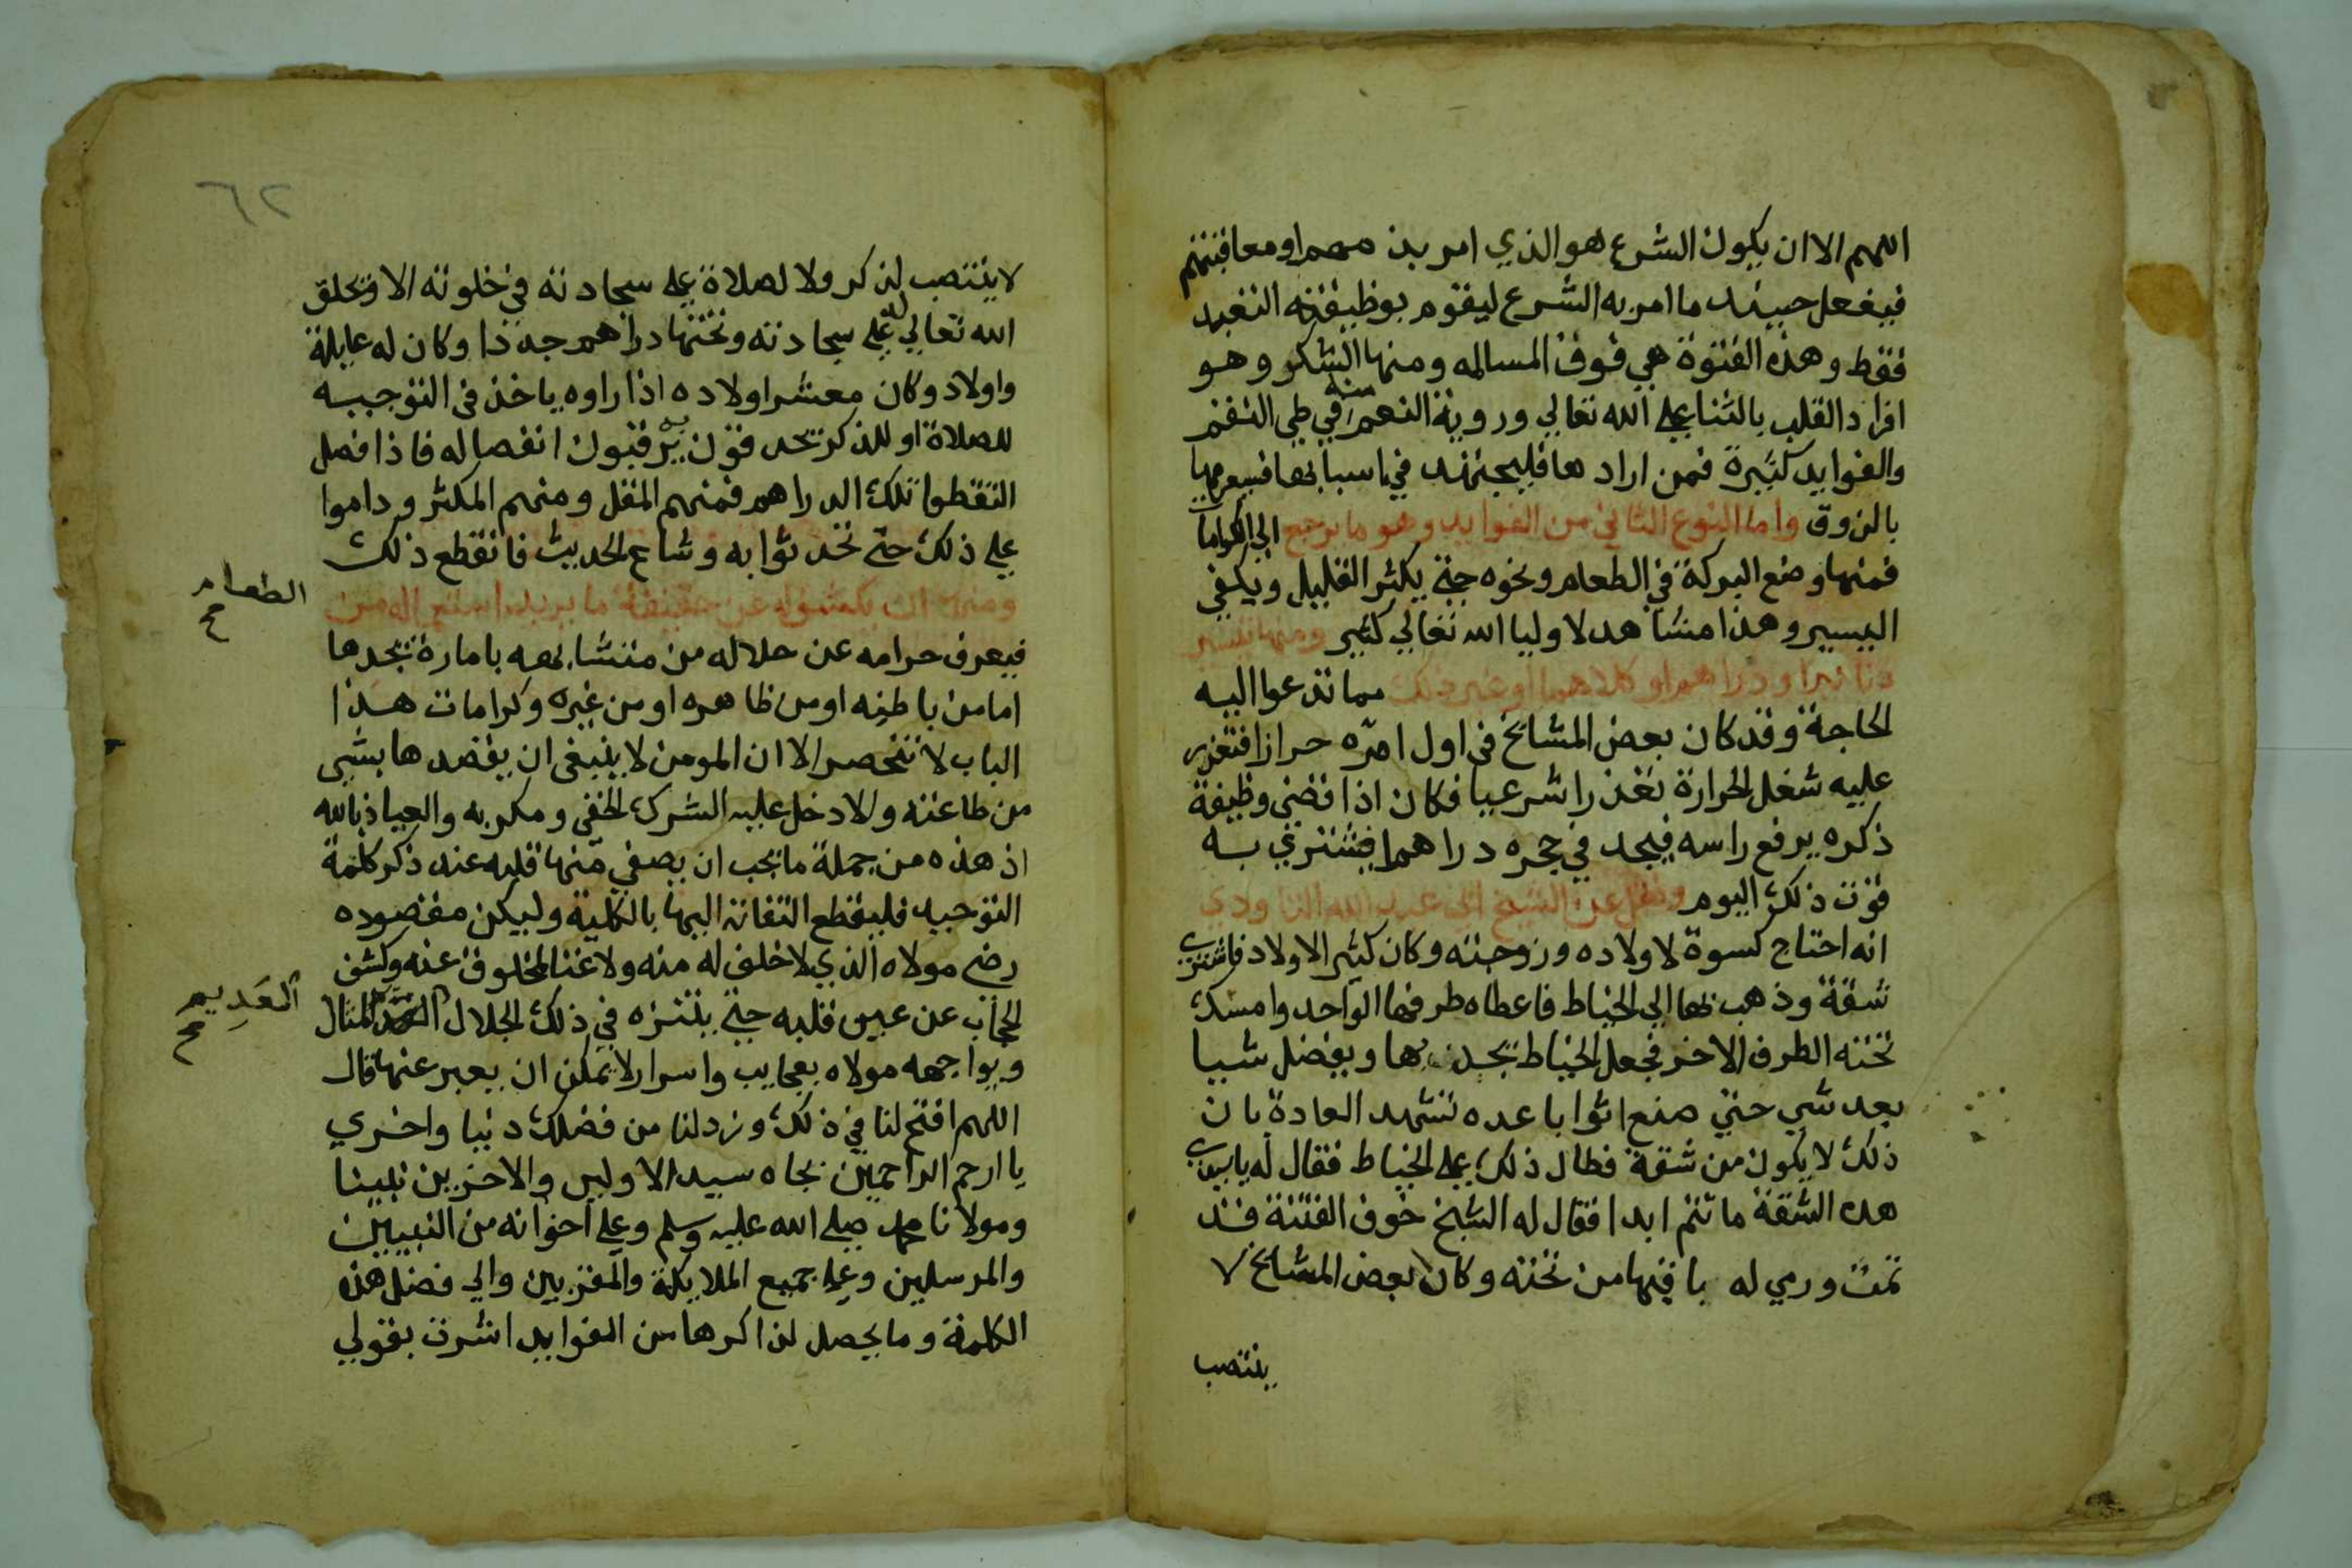 اللهم الا ان يكون الشرع هو الذي امر بذمهم او معاقبتهم
فيفعل حينئذ ما امر به الشرع ليقوم بوظيفة التعبد
فقط وهذه الفتوة هي فوق المسالمه ومنها الشكر وهو
افراد القلب بالثنا على الله تعالي وروية النعم منه في طي النقم
والفوايد كثيرة فمن اراد ها فليجتهد في اسبابها فسيعرفها
بالذوق واما النوع الثاني من الفوايد وهو ما يرجع الي الكرامات
فمنها وضع البركة في الطعام ونحوه حتي يكثر القليل ويكفي
اليسير وهذا مشاهد لاوليا الله تعالي كثير ومنها تيسير
دنانير او دراهم او كلاهما او غير ذلك مما تدعوا اليه
الحاجة وقد كان بعض المشايخ في اول امره حرازا فتعذر
عليه شغل الحرازة تعذرا شرعيا فكان اذا قضي وظيفة
ذكره يرفع راسه فيجد في حجره دراهم فيشتري به
قوت ذلك اليوم ونقل عن الشيخ ابي عبد الله التاودي
انه احتاج كسوة لاولاده وزوجته وكان كثير الاولاد فاشترى
شقة وذهب بها الي الخياط فاعطاه طرفها الواحد وامسك
تحته الطرف الاخر فجعل الخياط يجذبها ويفصل شيا
بعد شي حتي صنع اثوابا عده تشهد العادة بان
ذلك لا يكون من شقة فطال ذلك على الخياط فقال له ياسيدي
هده الشقة ما تتم ابدا فقال له الشيخ خوف الفتنة قد
تمت ورمي له باقيها من تحته وكان بعض المشايخ لا
ينتصب
٦٢
لا ينتصب لذكر ولا لصلاة علي سجادته في خلوته الا وتخلق
الله تعالي له علي سجادته وتحتها دراهم جددا وكان له عايلة
واولاد وكان معشر اولاده اذا راوه ياخذ في التوجيه
للصلاة او للذكر يحدقون به يرقبون انفصاله فاذا فصل
التقطوا تلك الدراهم فمنهم المقل ومنهم المكثر وداموا
علي ذلك حتي تحدثوا به وشاع الحديث فانقطع ذلك
ومنها ان يكشف له عن حقيقة ما يريد استعماله من
الطعام
صح
فيعرف حرامه عن حلاله من متشابهه بامارة يجدها
اما من باطنه او من ظاهره او من غيره وكرامات هذا
الباب لا تنحصر الا ان المومن لا ينبغي ان يقصدها بشي
من طاعته والا دخل عليه الشرك الخفي ومكر به والعياذ بالله
اذ هذه من جملة ما يجب ان يصفي منها قلبه عند ذكر كلمة
التوحيد فليقطع التفاته اليها بالكلية وليكن مقصوده
رضي مولاه الذي لا خلف له منه ولا غنا لمخلوق عنه وكشف
الحجاب عن عين قلبه حتي يتنزه في ذلك الجلال المثال
العديم
صح
ويواجهه مولاه بعجايب واسرار لا يمكن ان يعبر عنها قال
اللهم افتح لنا في ذلك وزد لنا من فضلك دنيا واخري
يا ارحم الراحمين بجاه سيد الاولين والاخرين نبينا
ومولانا محمد صلي الله عليه وسلم وعلي اخوانه من النبيين
والمرسلين وعلي جميع الملايكة والمقربين والي فضل هذه
الكلمة وما يحصل لذاكرها من الفوايد اشرت بقولي